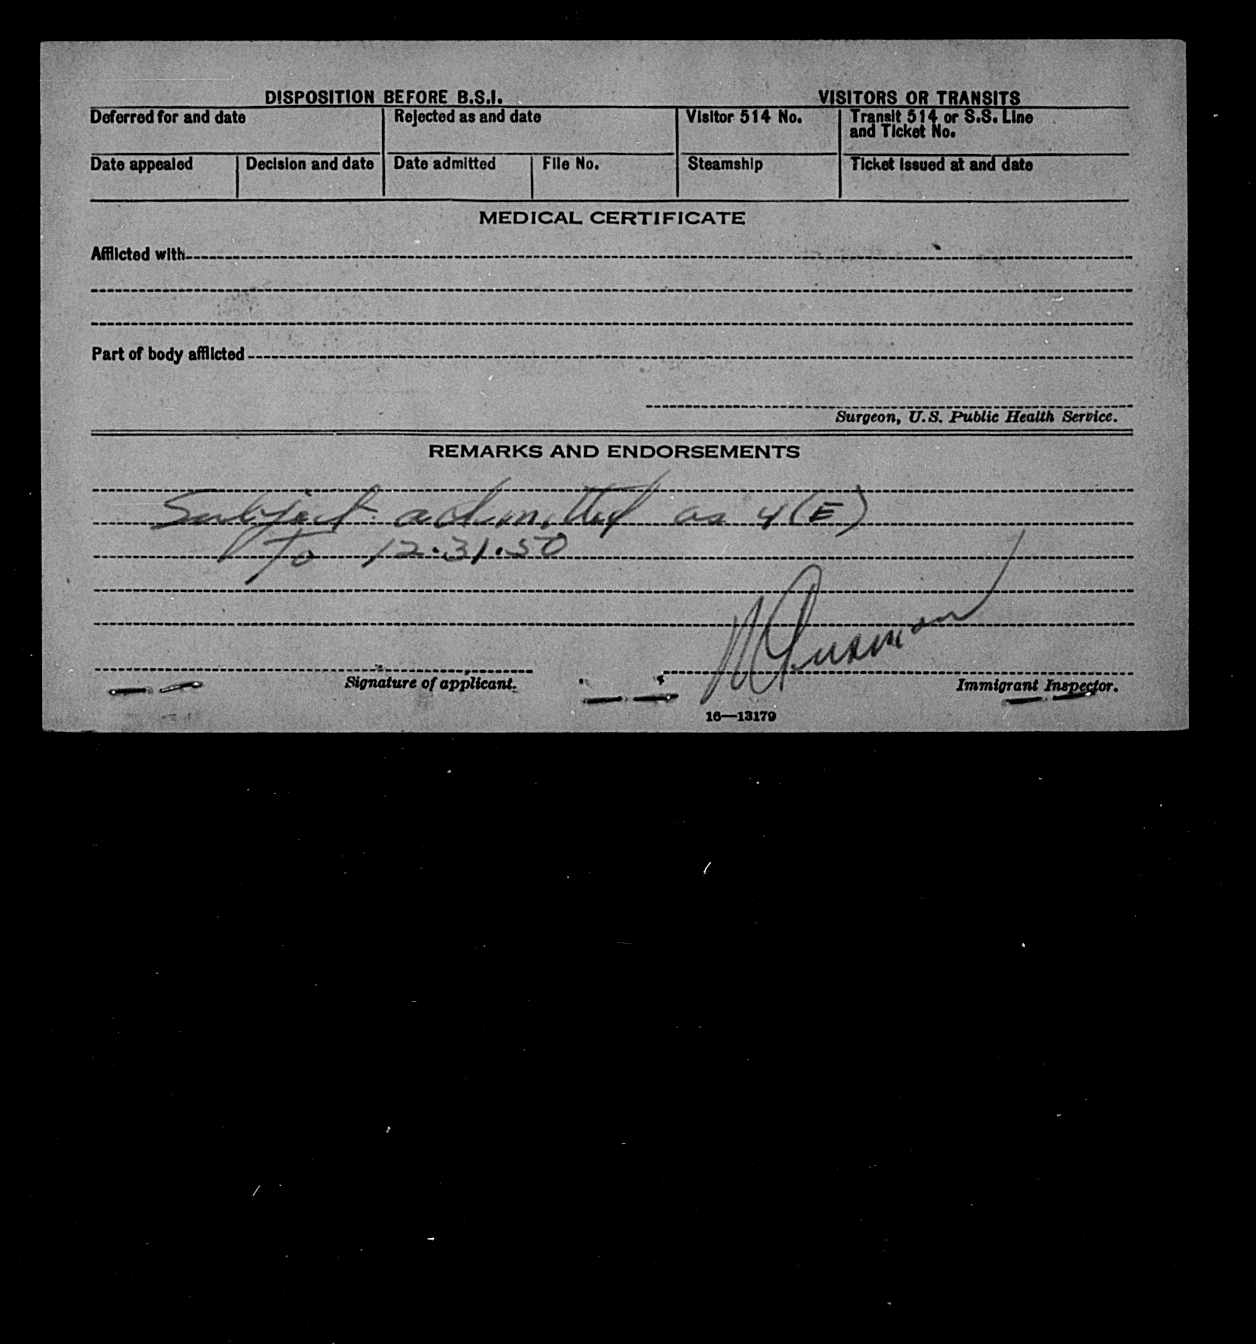 DISPOSITION BEFORE B.S.I.
VISITORS OR TRANSITS
Deferred for and date
Rejected as and date
Visitor 514 No.
Transit 514 or S.S. Line
and Ticket No.
Date appealed
Decision and date
Date admitted
File No.
Steamship
Ticket issued at and date
MEDICAL CERTIFICATE
Afflicted with
Part of body afflicted
Surgeon, U.S. Public Health Service.
REMARKS AND ENDORSEMENTS
Subject admitted as 4(E)
To 12.31.50
Signature of applicant.
Immigrant Inspector.
16—13179